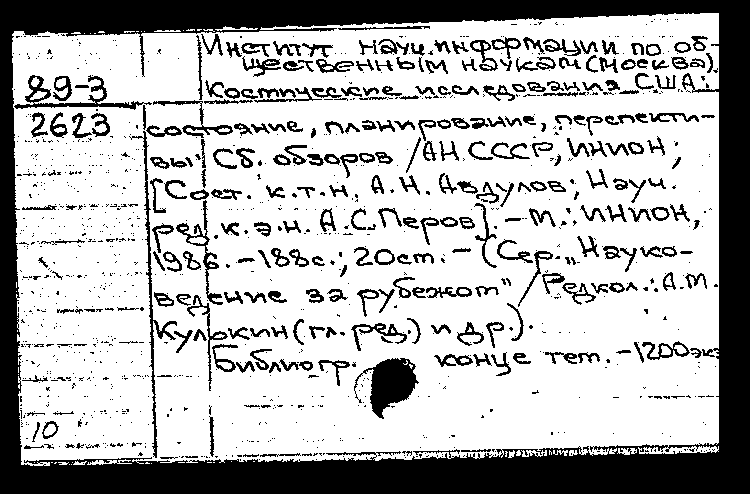 Институт науч. информации по об-
щественным наукам (Москва).
89-3
Космические исследования США:
2623
состояние, планирование, перспекти-
вы: Сб. обзоров / АН СССР, ИНИОН;
[Сост. к.т.н. А.Н. Авдулов; Науч.
ред. к.э.н. А.С. Перов]. – М.: ИНИОН,
1986. – 188с.; 20см. – (Сер. „Науко-
ведение за рубежом" / Редкол.: А.М.
Кулькин (гл. ред.) и др.).
Библиогр. конце тем. – 1200 экз
10